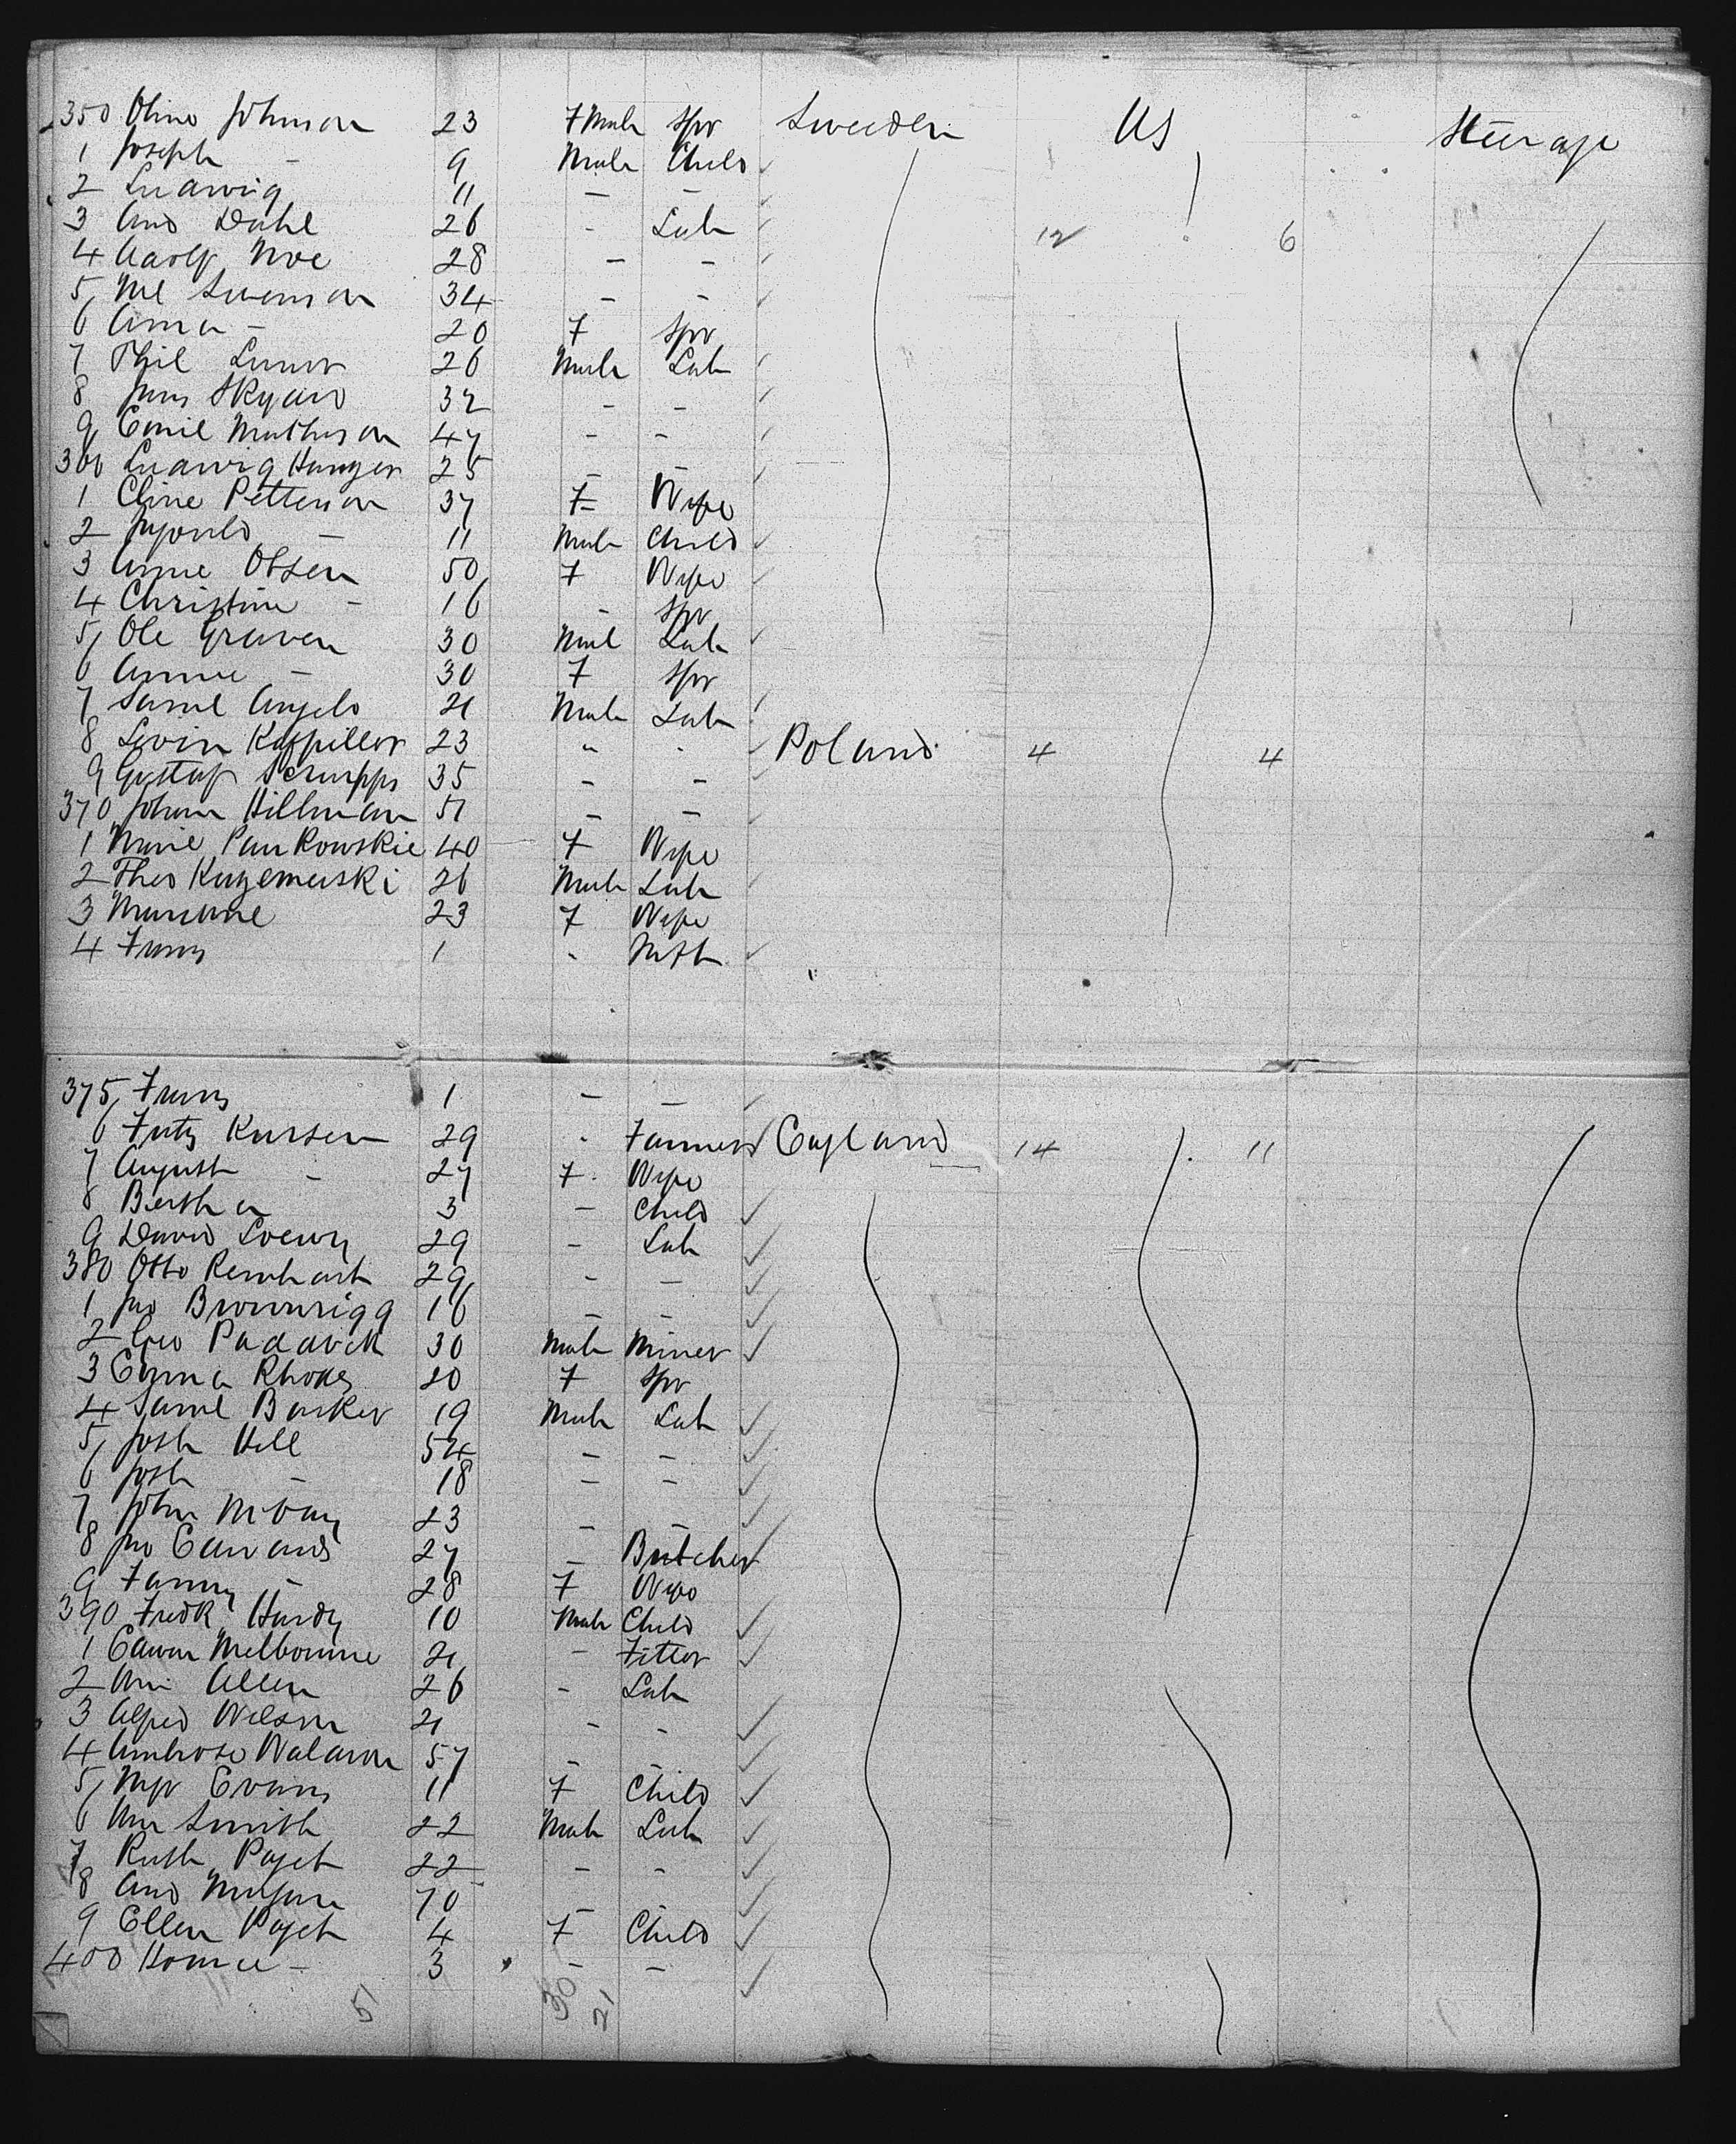 350 Oline Johnson 23 F Male Spr Sweden US Steerage
1 Joseph - 9 Male Child
2 Ludwig 11 - -
3 And Dahl 26 - Lab 12 6
4 Aadolf Moe 28 - -
5 Swenson 34 - -
6 Anna - 20 F Spr
7 Phil 26 Male Lab
8 Jens Skyard 32 - -
9 Emil Matheson 47 - -
360 Ludwig Hanger 25 - -
1 Cline Petterson 37 F Wife
2 - 11 Male Child
3 Anne Olsen 50 F Wife
4 Christine - 16 - Spr
5 Ole Graven 30 Male Lab
6 Annie - 30 F Spr
7 Saml Angelo 21 Male Lab
8 Levin 23 " " Poland 4 4
9 Gustaf 35 - -
370 Johan Hillman 51 - -
1 Marie Pankowskie 40 F Wife
2 Theo 26 Male Lab
3 23 F Wife
4 Franz 1 - Inft
375 Franz 1 - -
6 Fritz Kursen 29 - Farmer England 14 11
7 August - 27 F Wife
8 Bertha 3 - Child
9 David Loewy 29 - Lab
380 Otto Reinhart 29 - -
1 Jno Brownrigg 16 - -
2 Geo Padavick 30 Male Miner
3 Emma Rhodes 20 F Spr
4 Saml Barker 19 Male Lab
5 Josh Hill 54 - -
6 Josh - 18 - -
7 John McVay 23 - -
8 Jno Edwards 27 - Butcher
9 Fanny - 28 F Wife
390 Fredk Hardy 10 Male Child
1 Edwin Melbourne 21 - Fitter
2 Wm Allen 26 - Lab
3 Alfred Wilson 21 - -
4 Ambrose Waldron 57 - -
5 Evans 11 F Child
6 Wm Smith 22 Male Lab
7 Ruth Paget 22 - -
8 And 70 -
9 Ellen Paget 4 F Child
400 Horace - 3 - -
51 30 21